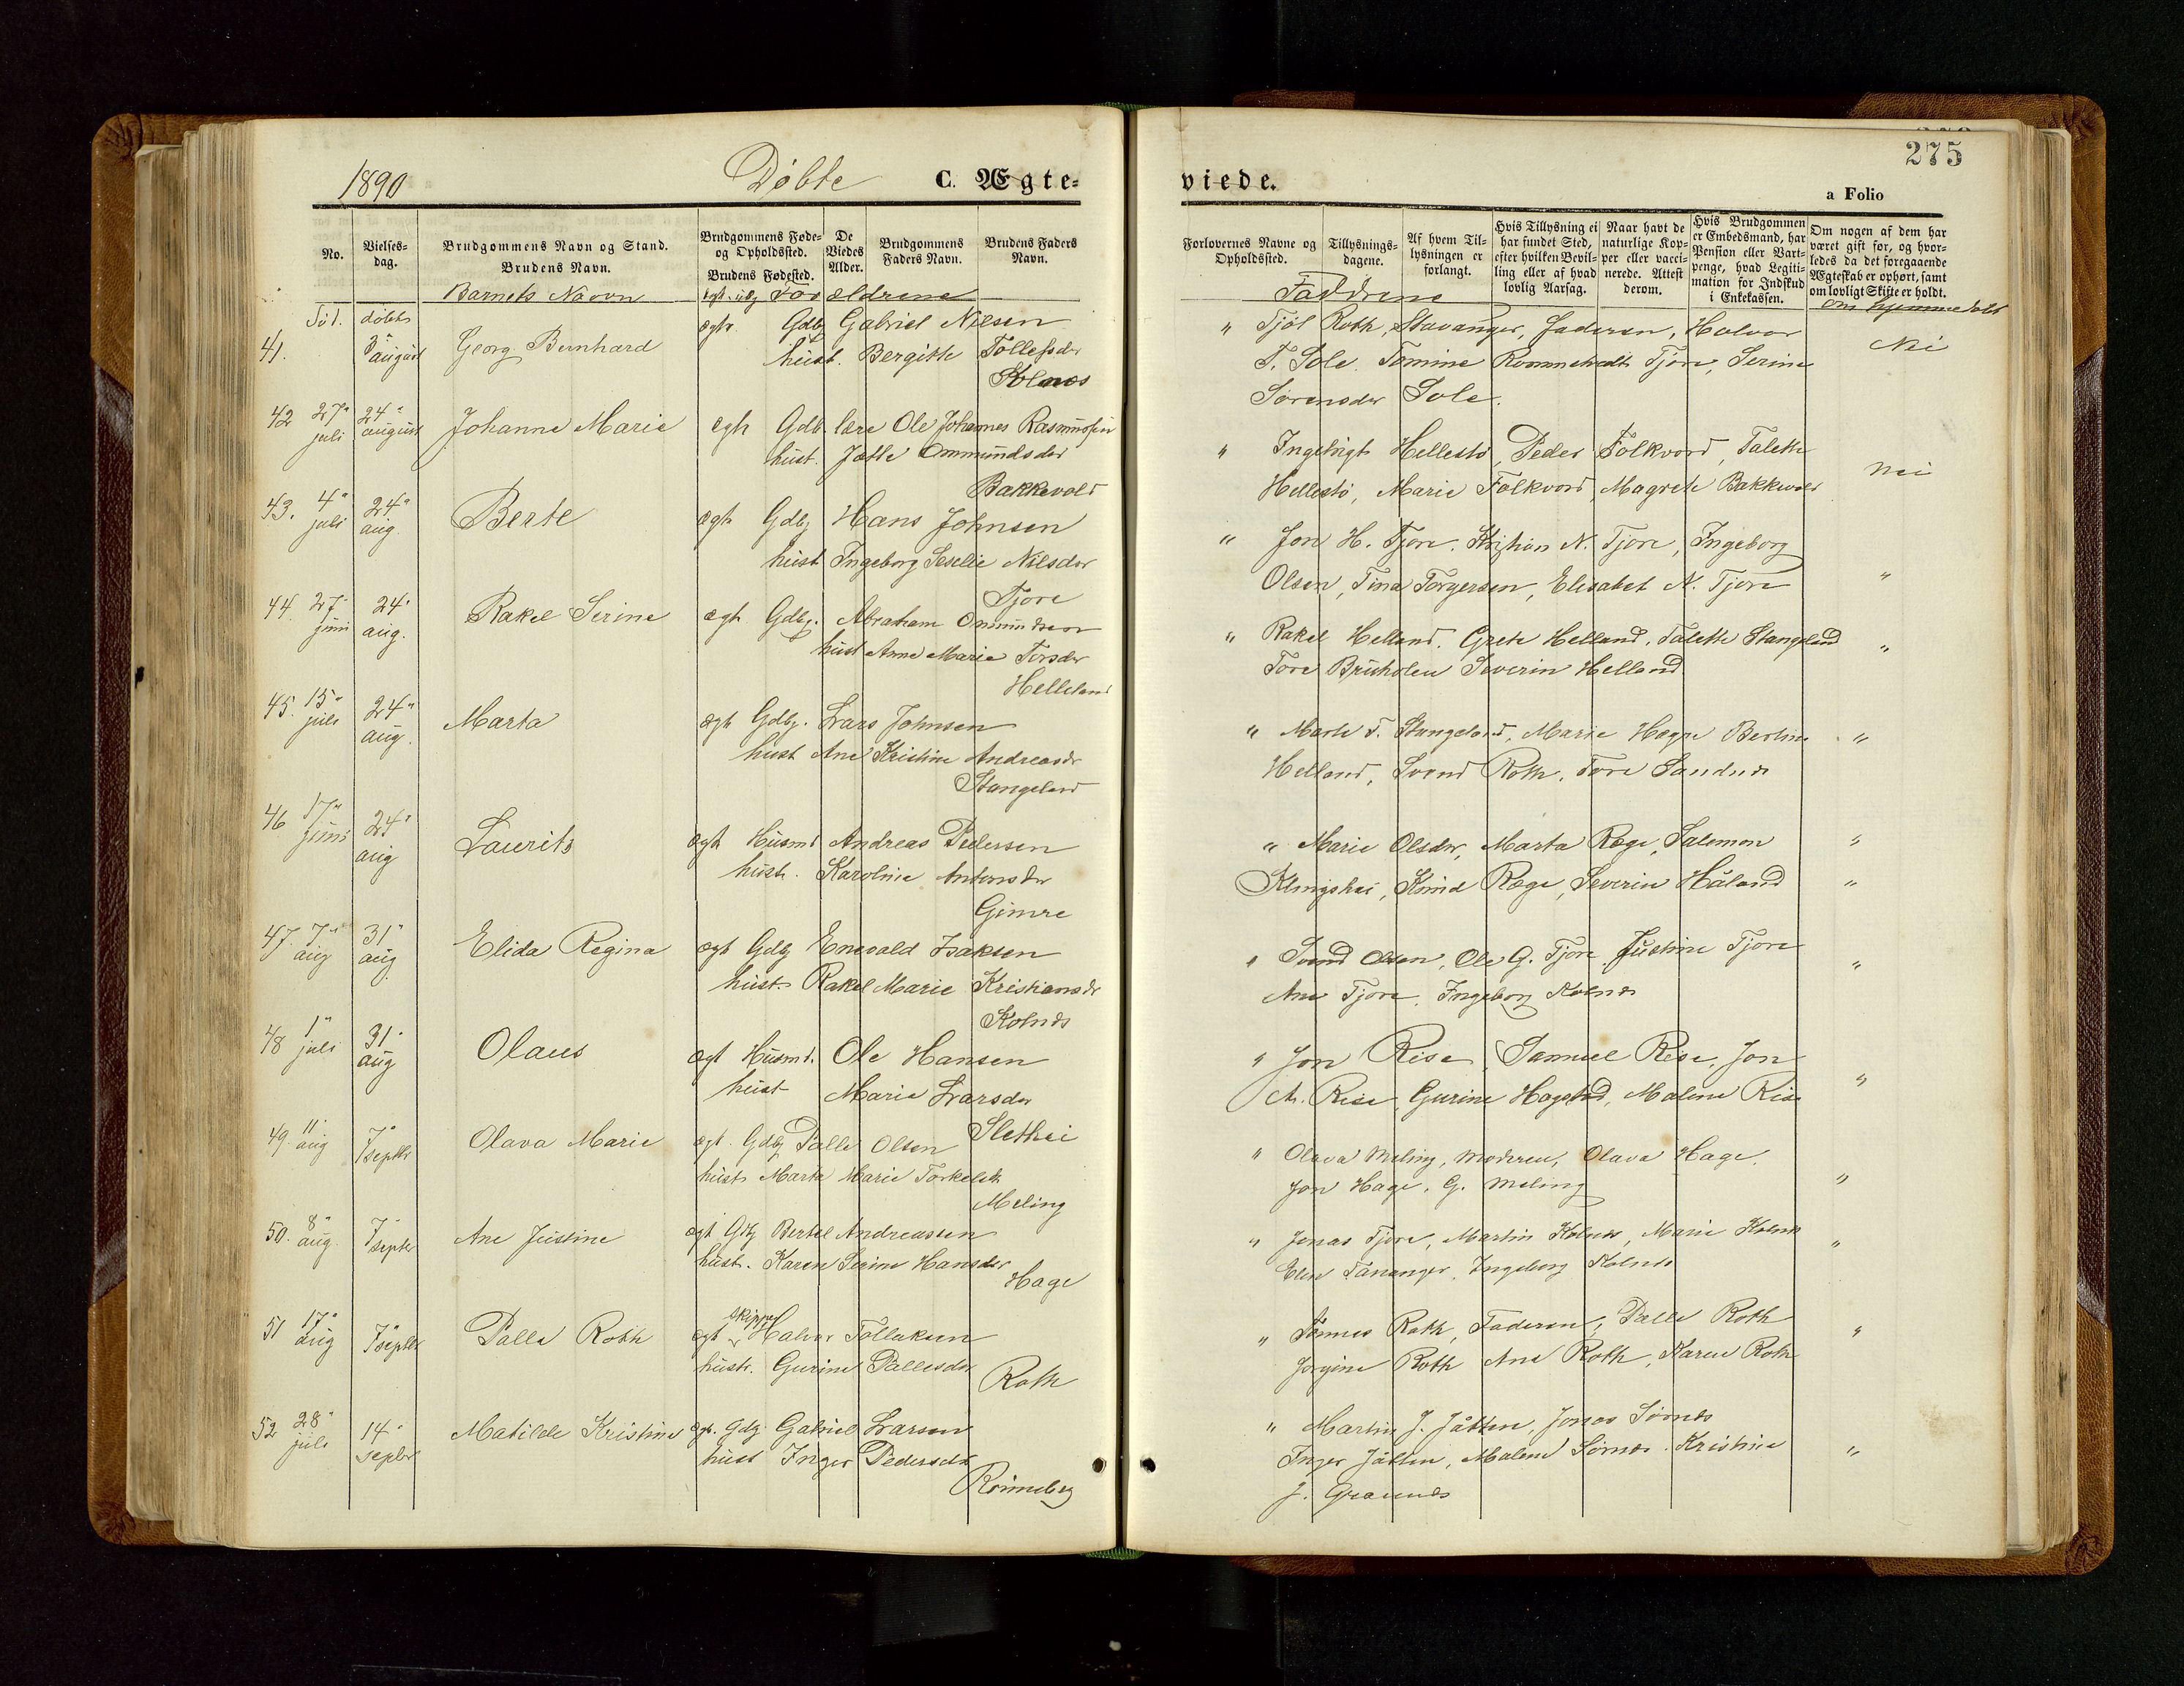 1890
Døbte
C. Ægte-
No.
Vielses-
dag.
Brudgommens Navn og Stand.
Brudens Navn.
Brudgommens Føde-
og Opholdssted.
Brudens Fødested.
De
Viedes
Alder.
Brudgommens
Faders Navn.
Brudens Faders
Navn.
Barnets Navn
Forældrene
Fød. døbt
41. 3" august Georg Bernhard ægte Gdbr Gabriel Nilsen
hust. Bergitte Tollefsdr
Kolnes
42 27" juli 24" august Johanne Marie ægte Gdb. lære Ole Johannes Rasmussen
hust. Ommundsdr
Bakkevold
43. 4" juli 24" aug. Berte ægte Gdbr Hans Johnsen
hust Ingeborg Seselie Nilsdr
Tjore
44. 27" juni 24" aug. Rakel Serine ægte Gdbr. Abraham Omundsen
hust Ane Marie Torsdr
Helleland
45. 15" juli 24" aug. Marta ægt Gdbr. Lars Johnsen
hust Ane Kristine Andreasdr
Stangeland
46 17" juni 24" aug Laurits ægt Husmd Andreas Pedersen
hustr. Karoline Antonsdr
Gimre
47. 7" aug 31" aug Elida Regina ægt Gdbr Enevald Isaksen
hust. Rakel Marie Kristiansdr
Kolnes
48 1" juli 31" aug Olaus ægt Husmd. Ole Hansen
hust Marie Larsdr
Slethei
49. 11. aug 7" septbr Olava Marie ægt. Gdbr Palle Olsen
hustr Marta Marie Torkelsdr
Meling
50. 8" aug. 7" septbr Ane Justine ægt Gdbr Bertel Andreassen
hustr. Karen Serine Hansdr
Hage
51 17" aug 7" septbr Palle Roth ægt skipper Halvor Tollaksen
hustr. Gurine Pallesdr
Roth
52 28" juli 14" septbr Matilde Kristine ægt. Gdbr Gabriel Larsen
hust Inger Pedersdr
Rønneberg
275
viede.
a Folio
Forlovernes Navne og
Opholdssted.
Tillysnings-
dagene.
Af hvem Til-
lysningen er
forlangt.
Hvis Tillysning ei
har fundet Sted,
efter hvilken Bevil-
ling eller af hvad
lovlig Aarsag.
Naar havt de
naturlige Kop-
per eller vacci-
nerede. Attest
derom.
Hvis Brudgommen
er Embedsmand, har
Pension eller Vart-
penge, hvad Legiti-
mation for Indskud
i Enkekassen.
Om nogen af dem har
været gift før, og hvor-
ledes da det foregaaende
Ægteskab er ophørt, samt
om lovligt Skifte er holdt.
Faddrene
om hjemmedøbt
" Tjøl Roth, Stavanger, Faderen, Halvor
T. Sole. Tomine Tjore, Serine
Sørensdr Sole.
Nei
" Ingebrigt Hellestø, Peder Folkvord, Talette
Hellestø, Marie Folkvord, Magrete Bakkevold
nei
" Jon H. Tjore. Kristian N. Tjore, Ingeborg
Olsen, Tina Torgersen, Elisabet N. Tjore
"
" Rakel Helland. Grete Helland. Talette Stangeland
Tore Bruholen Severin Helland
"
" Marte T. Stangeland, Marie Hogne Bertine
Helland, Svend Roth. Tore Sandnes
"
" Marie Olsdr, Marta Rege, Salemon
Klingshei, Knud Rege, Severin Håland
"
"
" Svend Olsen, Ole G. Tjore Justine Tjore
Ane Tjore. Ingeborg Kolnes
"
" Jon Risa, Samuel Risa, Jon
A. Risa, Gurine Hogstad, Malene Risa
"
" Olava Meling, Moderen, Olava Hage.
Jon Hage, G. Meling
"
" Jonas Tjore, Martin Kolnes, Marie Kolnes
Elen Tananger, Ingeborg Kolnes
"
" Tønnes Roth, Faderen, Palle Roth
Jørgine Roth Ane Roth, Karen Roth
"
" Martin J. Jåtten, Jonas Sømes
Inger Jåtten, Malene Sømes. Kristine
J. Grannes
"